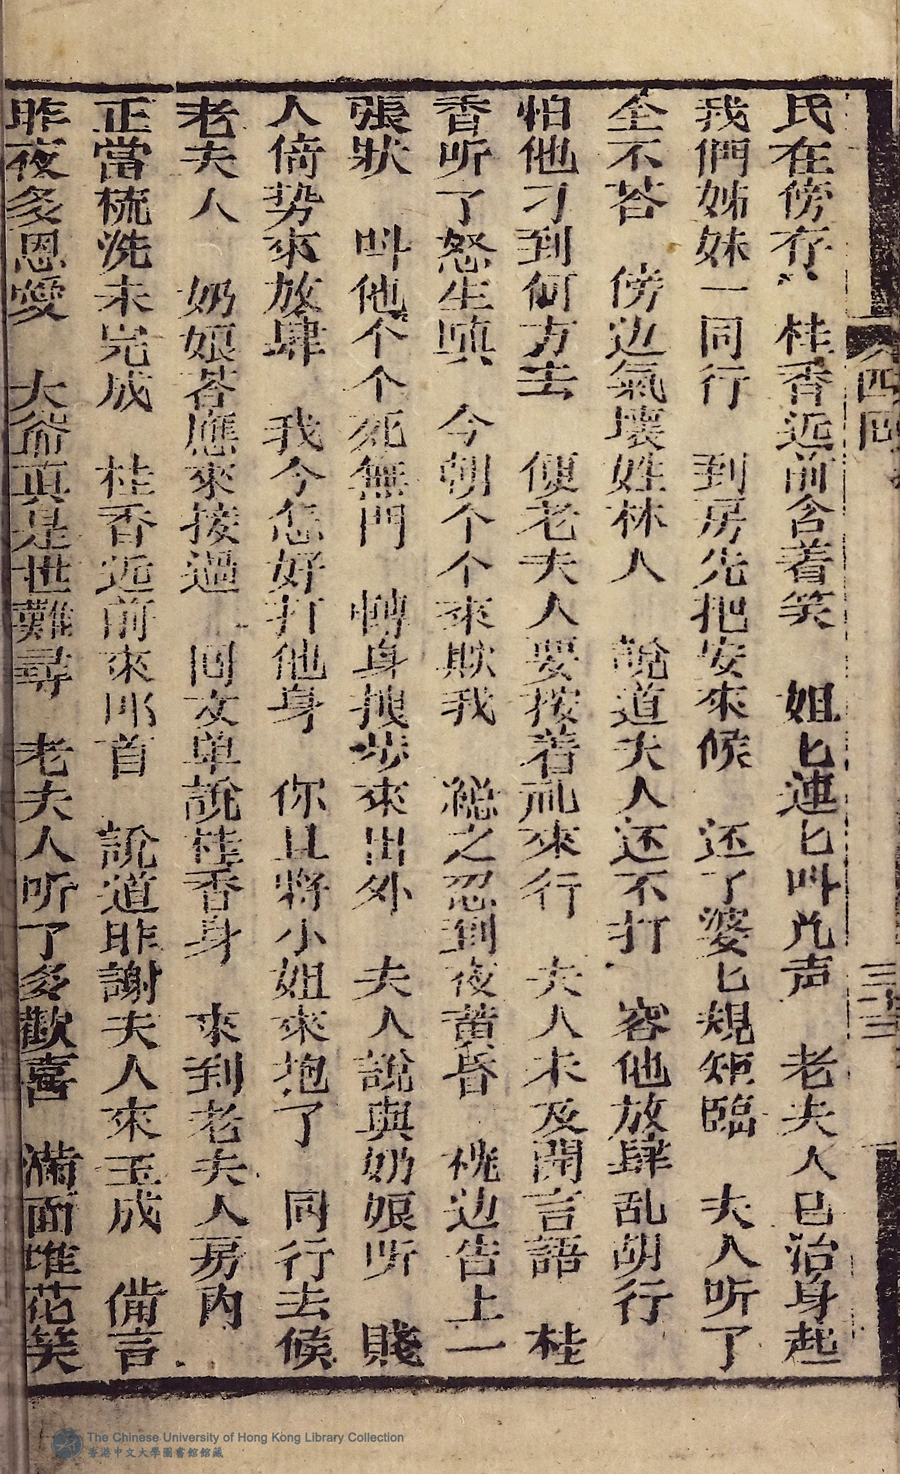 氏在傍存〻　桂香近前含着笑　姐匕連匕叫几声　老夫人已治身起
我們姊妹一同行　到房先把安來候　还了婆匕規矩臨　夫人听了
全不荅　傍边氣壞姓林人　說道夫人还不打　容他放肆乱胡行
怕他刁到何方去　便老夫人要按着礼來行　夫人未及開言語　桂
香听了怒生嗔　今朝个个來欺我　總之忍到夜黄昏　桃边告上一
張狀　叫他个个死無門　轉身拽步來出外　夫人說與奶娘听　賤
人倚势來放肆　我今怎好打他身　你且將小姐來抱了　同行去候
老夫人　奶娘荅應來接過　回文单說桂香身　來到老夫人房內
正當梳洗未完成　桂香近前來叩首　說道昨謝夫人來玉成　備言
昨夜多恩愛　大爺真是世難尋　老夫人听了多歡喜　滿面堆花笑
卷四回
三十三
The Chinese University of Hong Kong Library Collection
香港中文大學圖書館館藏